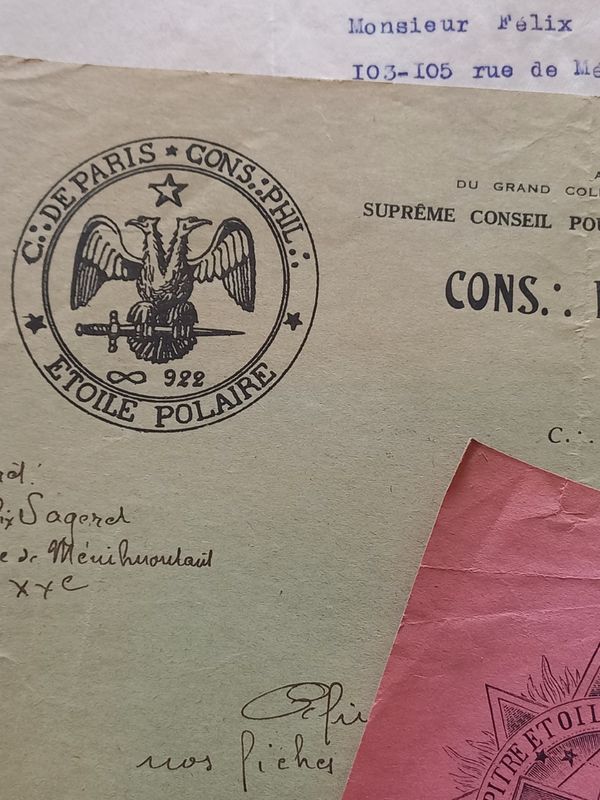 Monsieur Félix
103-105 rue de Mé
C∴ DE PARIS ★ CONS∴ PHIL∴
★ ETOILE POLAIRE ★
∞ 922
A
DU GRAND COL
SUPRÊME CONSEIL POU
CONS∴
C∴
ix Sagerd
e de Ménilmontant
XXe
nos fiches
PITRE ETOIL